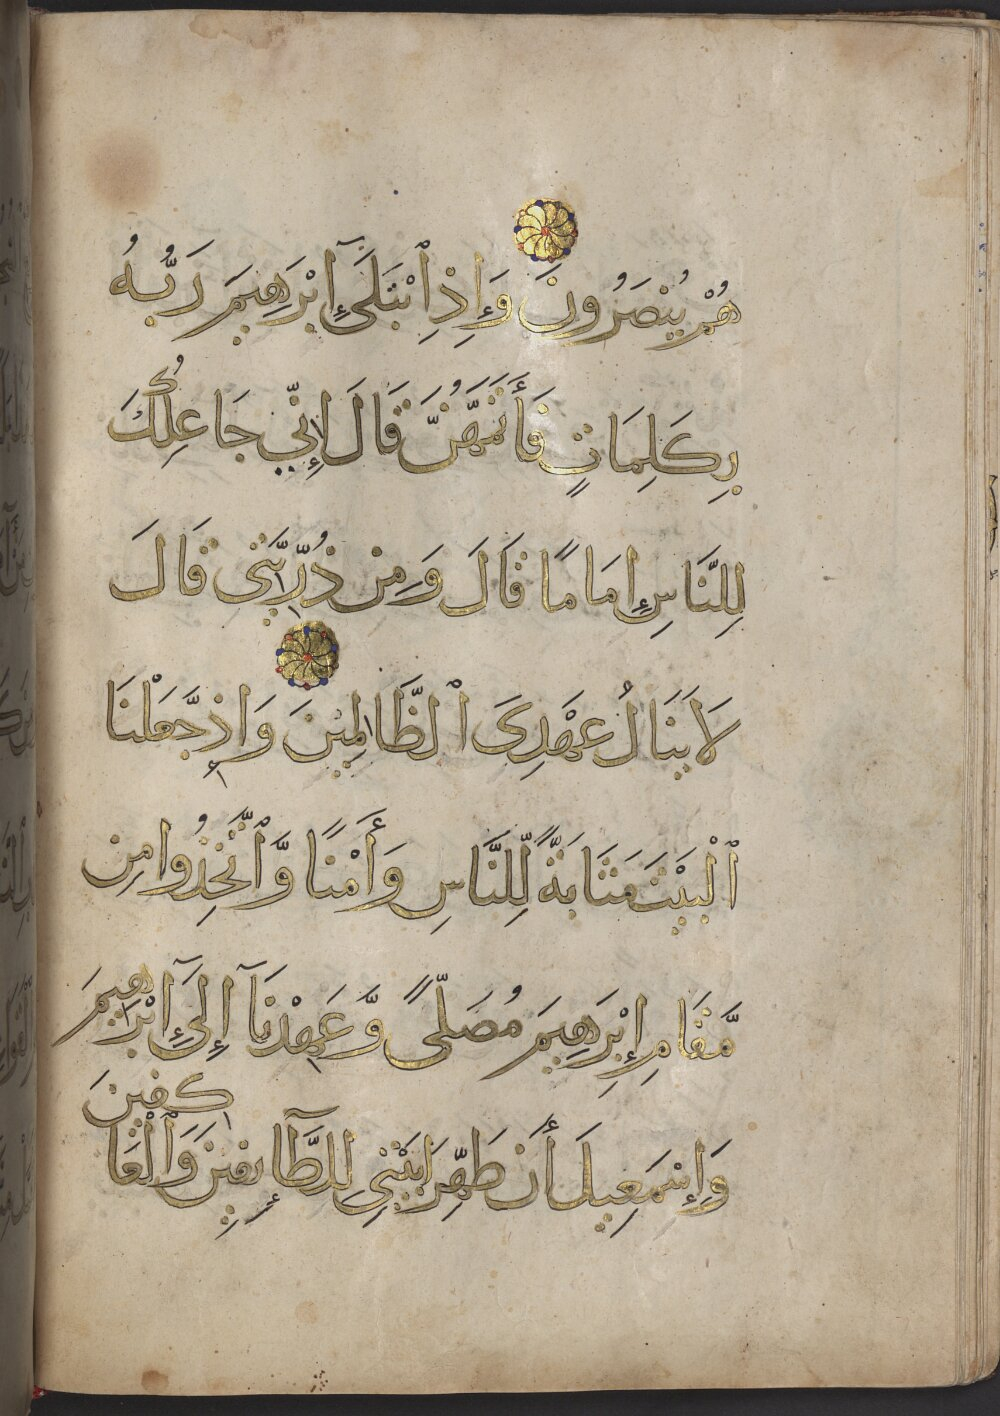 هُمْ يُنصَرُونَ وَإِذِ ٱبْتَلَىٰٓ إِبْرَهِيمَ رَبُّهُ
بِكَلِمَاتٍ فَأَتَمَّهُنَّ قَالَ إِنِّي جَاعِلُكَ
لِلنَّاسِ إِمَامًا قَالَ وَمِن ذُرِّيَّتِي قَالَ
لَا يَنَالُ عَهْدِىَ ٱلظَّالِمِينَ وَإِذ جَّعَلْنَا
ٱلْبَيْتَ مَثَابَةً لِّلنَّاسِ وَأَمْنًا وَّٱتَّخِذُوا مِن
مَّقَامِ إِبْرَهِيمَ مُصَلًّى وَّعَهِدْنَآ إِلَىٰٓ إِبْرَهِيمَ
وَإِسْمَعِيلَ أَن طَهِّرَا بَيْتِي لِلطَّآئِفِينَ وَٱلْعَاكِفِينَ